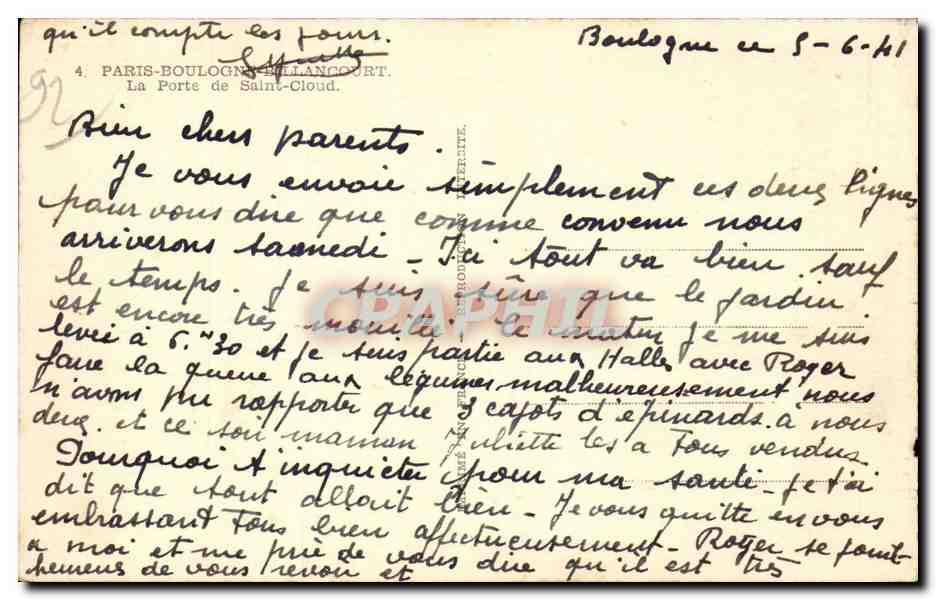 qu'il compte les jours.
Boulogne ce 5-6-41
4. PARIS-BOULOGNE-BILLANCOURT.
La Porte de Saint-Cloud.
92
Bien chers parents.
Je vous envoie simplement ces deux lignes
pour vous dire que comme convenu nous
arriverons samedi - Ici tout va bien. sauf
le temps. Je suis sûre que le jardin
est encore très mouillé. le matin je me suis
levée à 6.h30 et je suis partie aux Halles avec Roger
faire la queue aux légumes malheureusement nous
n'avons pu rapporter que 3 cajots d'épinards. a nous
deux. et ce soir maman Juliette les a tous vendus
Pourquoi t'inquieter pour ma santé - je t'ai
dit que tout allait bien - Je vous quitte en vous
embrassant tous bien affectueusement - Roger se joint
a moi et me prie de vous dire qu'il est très
heureux de vous revoir et
REPRODUCTION INTERDITE.
CPARAMA